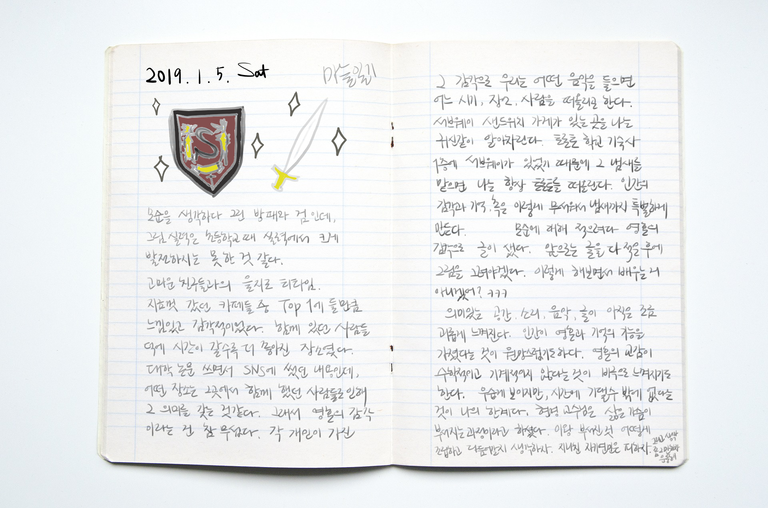 2019. 1. 5. Sat
마늘일기
S
모순을 생각하다 그린 방패와 검인데,
그림 실력은 초등학교 때 실력에서 크게
발전하지는 못한 것 같다.
고마운 친구들과의 을지로 티타임.
지금껏 갔던 카페들 중 Top 1에 들만큼
느낌있고 감각적이었다. 함께 있던 사람들
덕에 시간이 갈수록 더 좋아진 장소였다.
대학 논문 쓰면서 SNS에 썼던 내용인데,
어떤 장소는 그곳에서 함께 했던 사람들로 인해
그 의미를 갖는 것같다. 그래서 영혼의 감각
이라는 건 참 무섭다. 각 개인이 가진
그 감각으로 우리는 어떤 음악을 들으면
어느 시기, 장소, 사람을 떠올리곤 한다.
서브웨이 샌드위치 가게가 있는 곳을 나는
귀신같이 알아차린다. 토론토 학교 기숙사
1층에 서브웨이가 있었기 때문에 그 냄새를
맡으면 나는 항상 토론토를 떠올린다. 인간의
감각과 기억, 혹은 이렇게 무서워서 냄새까지 특별하게
만든다. 모순에 대해 적으려다 영혼의
감각으로 글이 샜다. 앞으로는 글을 다 적은 후에
그림을 그려야겠다. 이렇게 해보면서 배우는 거
아니겠어? ㅋㅋㅋ
의미있는 공간, 소리, 음악, 글이 아직은 조금
괴롭게 느껴진다. 인간이 영혼과 기억의 기능을
가졌다는 것이 원망스럽기도하다. 영혼의 교감이
수학적이고 기계적이지 않다는 것이 비극으로 느껴지기도
한다. 우습게 보이지만, 시간에 기댈수 밖에 없다는
것이 나의 한계다. 현경 교수님은 삶은 가슴이
부서지는 과정이라고 하셨다. 이왕 부서진 것 어떻게
조립하고 다듬을지 생각하자. 지나친 자기연민은 피하자.